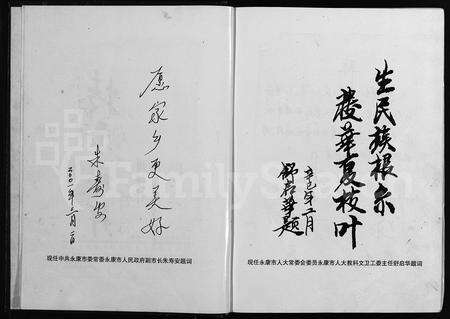 愿家乡更美好
朱寿安
二〇〇一年二月
现任中共永康市委常委永康市人民政府副市长朱寿安题词
生民族根
华夏枝叶
辛巳年二月
舒启华题
现任永康市人大常委会委员永康市人大教科文卫工委主任舒启华题词
FamilySearch